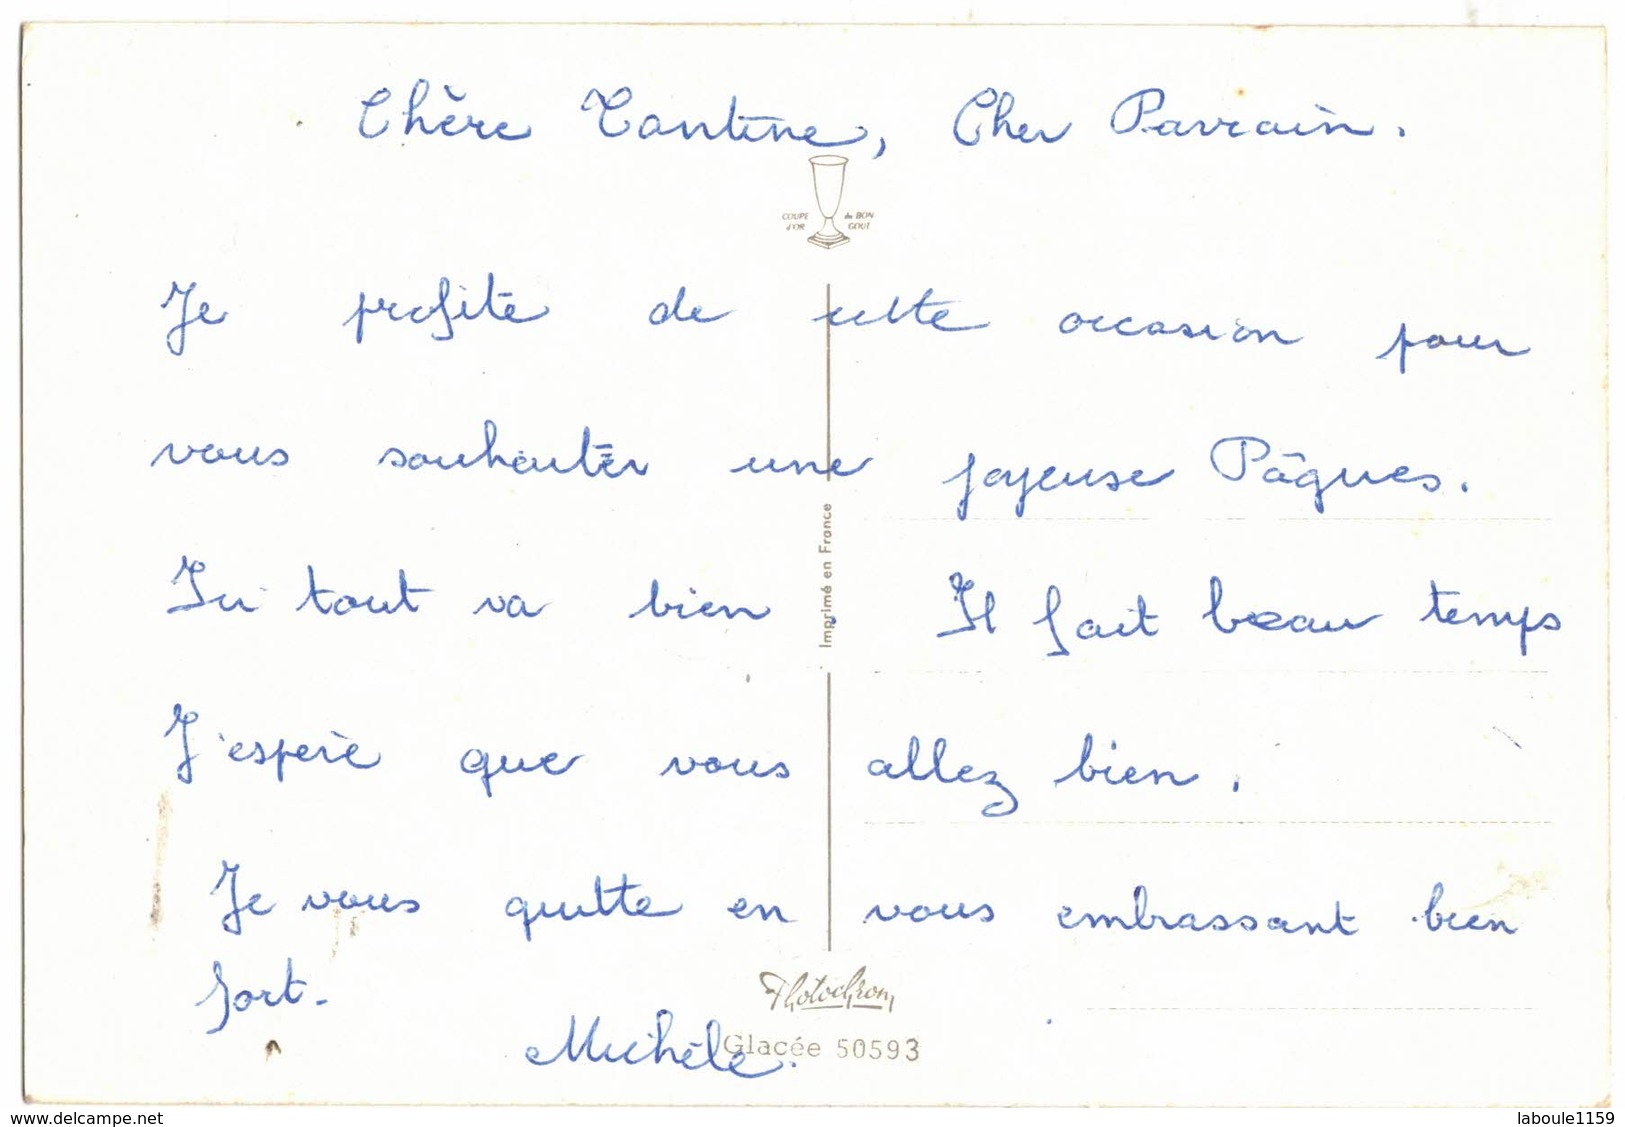 Chère Tantine, Cher Parrain.
COUPE D'OR du BON GOUT
Je profite de cette occasion pour
vous souhaiter une joyeuse Pâques.
Ici tout va bien. Il fait beau temps
J'espère que vous allez bien.
Je vous quitte en vous embrassant bien
fort.
Michèle.
Imprimé en France
Photochrom
Glacée 50593
www.delcampe.net
laboule1159